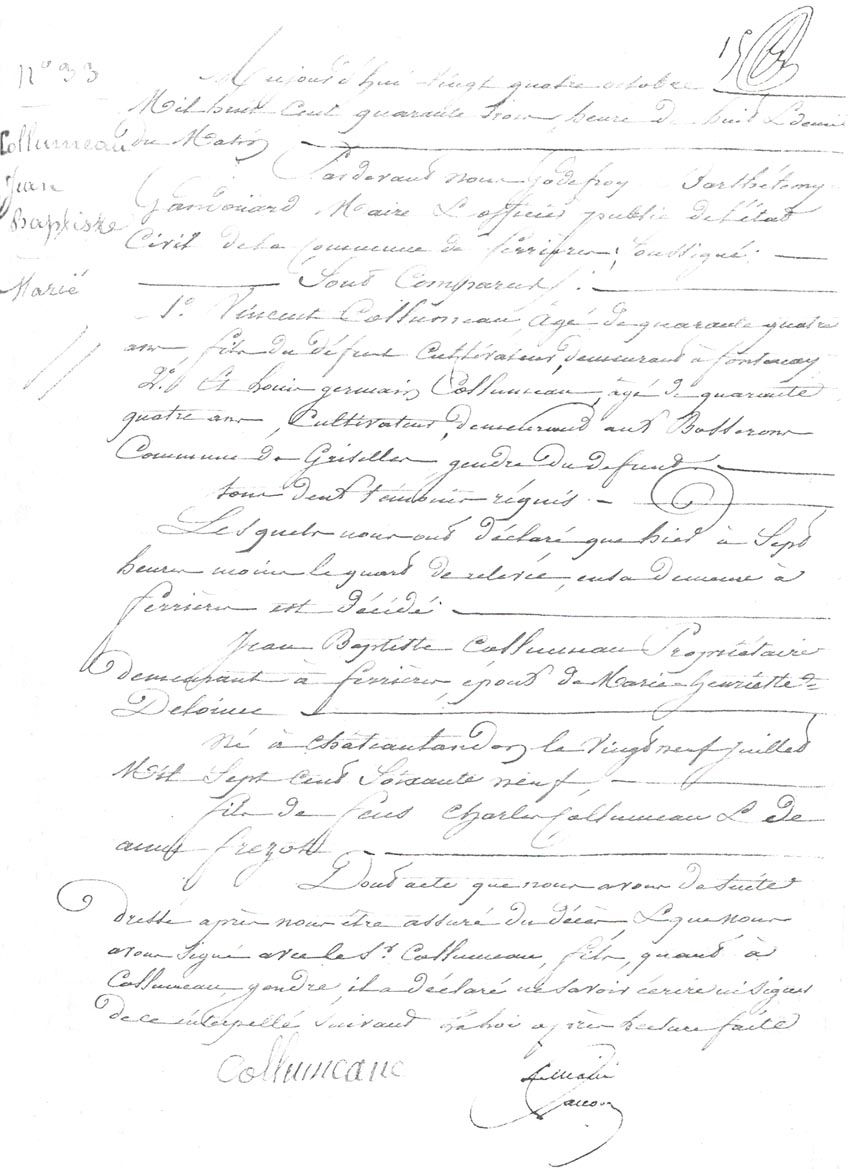 15
N° 33
Collumeau
Jean
Baptiste
Marié
Aujourd'hui vingt quatre octobre
Mil huit cent quarante trois, heure de huit & demie
du Matin
Pardevant nous Godefroy Barthélemy
Maire & officier public de l'état
Civil de la Commune de ferrières, soussigné:
Sont Comparus:
1° Vincent Collumeau âgé de quarante quatre
ans, fils du défunt cultivateur, demeurant à fontenay
2° Et Louis germain Collumeau, âgé de quarante
quatre ans, Cultivateur, demeurant aux
Commune de Griselles, gendre du defunt
tous deux témoins réquis. -
Lesquels nous ont déclaré que hier à Sept
heures moins le quart de relevée, en sa demeure à
ferrières est décédé:
Jean Baptiste Collumeau Propriétaire
demeurant à ferrières, époux de Marie henriette
Deloince
Né à chateaulandon le vingt neuf juillet
Mil Sept cent Soixante neuf,
fils de feus Charles Collumeau & de
anne frezot
Dont acte que nous avons de suite
dressé après nous être assuré du décès, & que nous
avons Signé avec le Sr Collumeau, fils, quant à
Collumeau, gendre, il a déclaré ne savoir écrire ni signer
de ce interpellé suivant la loi après lecture faite
Collumeau